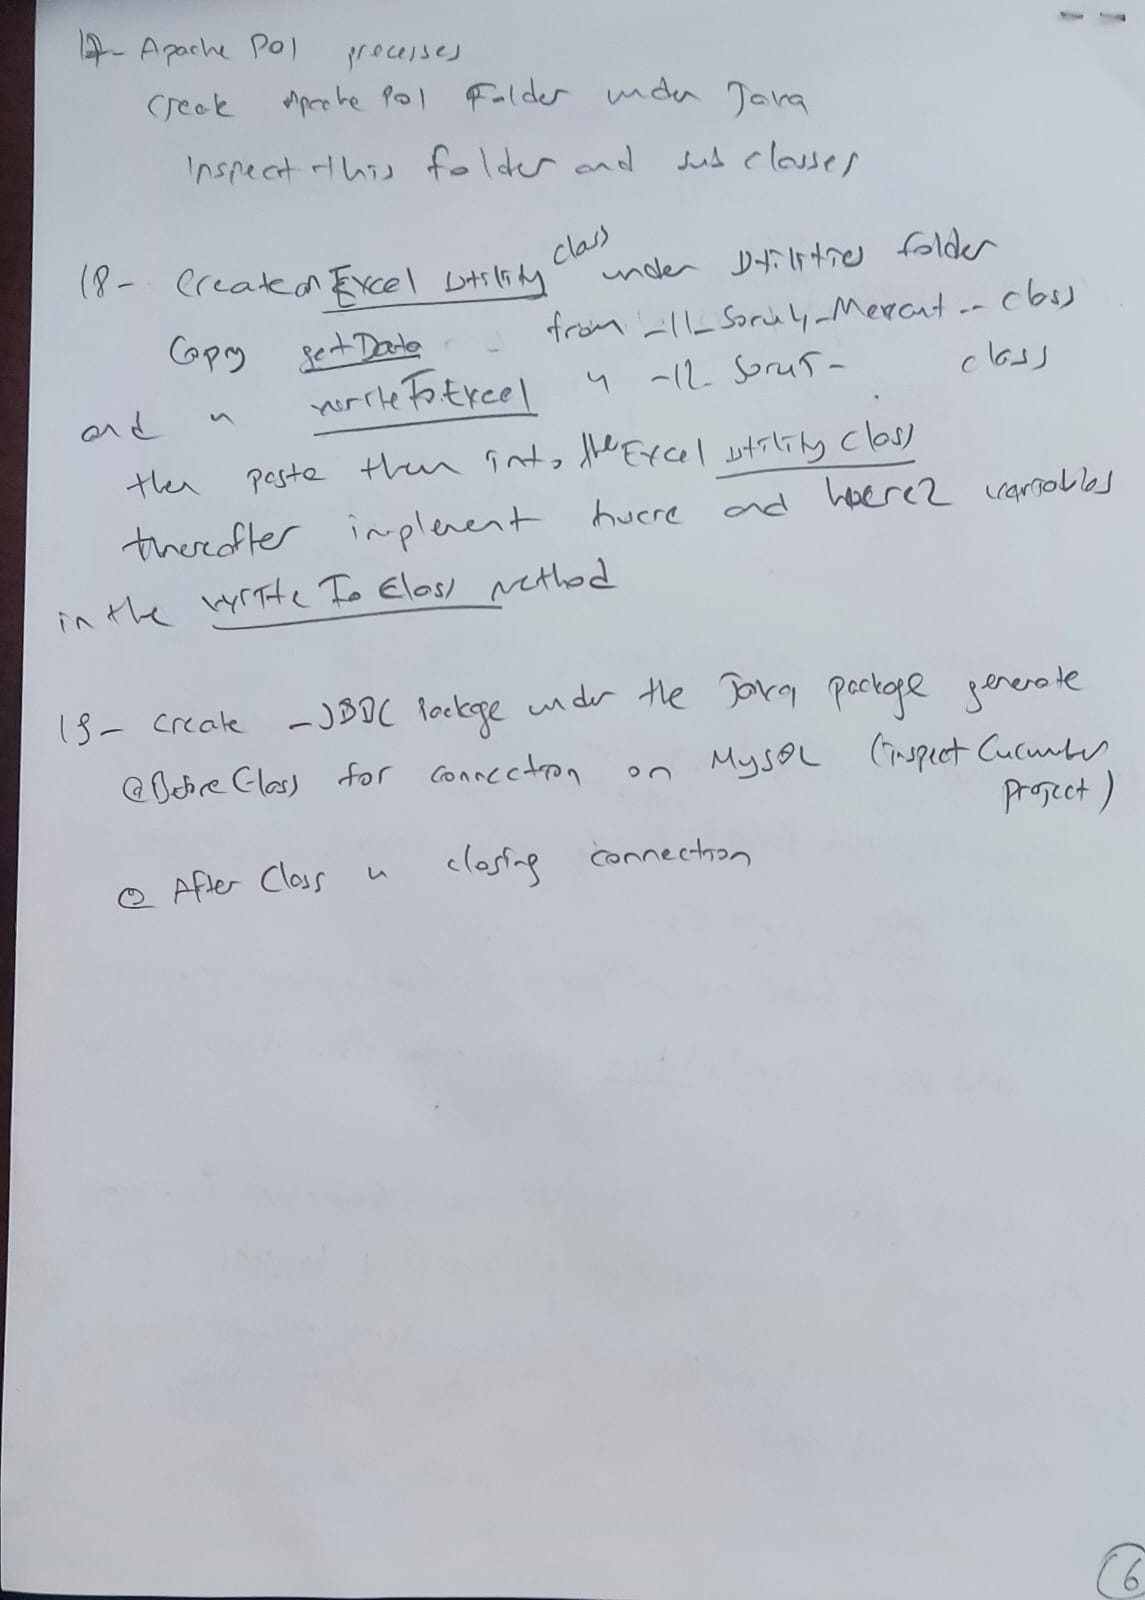 17- Apache POI processes
Create Apache POI Folder under Java
Inspect this folder and sub classes
18- Create an Excel Utility class under Utilities folder
Copy getData from _11_Soru4_Mevcut -- class
and " writeToExcel " _12_Soru5_ class
then paste then into the Excel Utility Class
thereafter implement hucre and hucre2 variables
in the write To Class method
19- create _JDBC Package under the Java package generate
@Before Class for connection on MySQL (inspect Cucumber
project)
@ After Class " closing connection
6